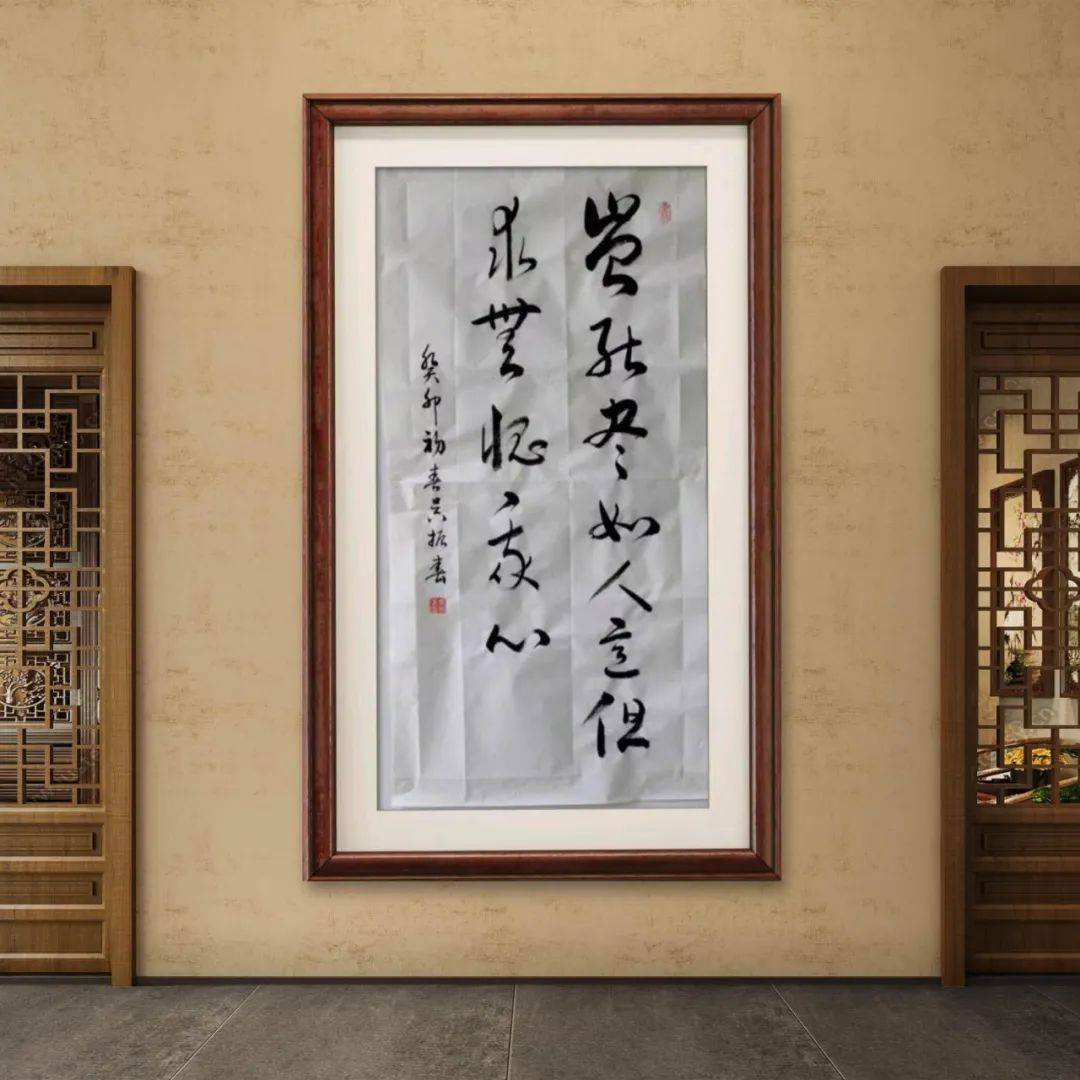 豈能尽如人意但
求無愧我心
癸卯初春吴振春